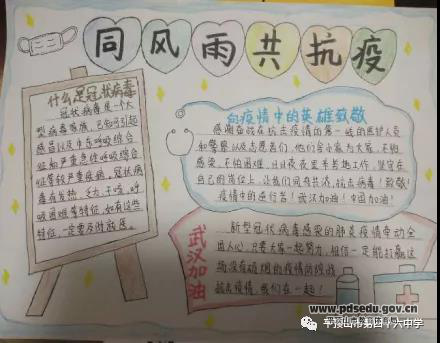 同风雨共抗疫
什么是冠状病毒
冠状病毒是一个大
型病毒家族,已知可引起
感冒以及中东呼吸综合
征和严重急性呼吸综合
征等较严重疾病。冠状病
毒有发热、乏力、干咳、呼
吸困难等特征,如有这些
特征,一定要及时就医。
向疫情中的英雄致敬
感谢奋战在抗击疫情的第一线的医护人员
和警察,以及志愿者们,他们舍小家为大家,不怕
感染,不怕困难,日日夜夜坚守
自己的岗位上,让我们同舟共济,抗击病毒!致敬!
疫情中的逆行者!武汉加油!中国加油!
武汉加油
新型冠状病毒感染的肺炎疫情牵动全
国人心,只要大家一起努力,相信一定能打赢这
场没有硝烟的疫情防控战
抗击疫情,我们在一起!
www.pdsedu.gov.cn
平顶山市教育体育局
平顶山市第四十六中学